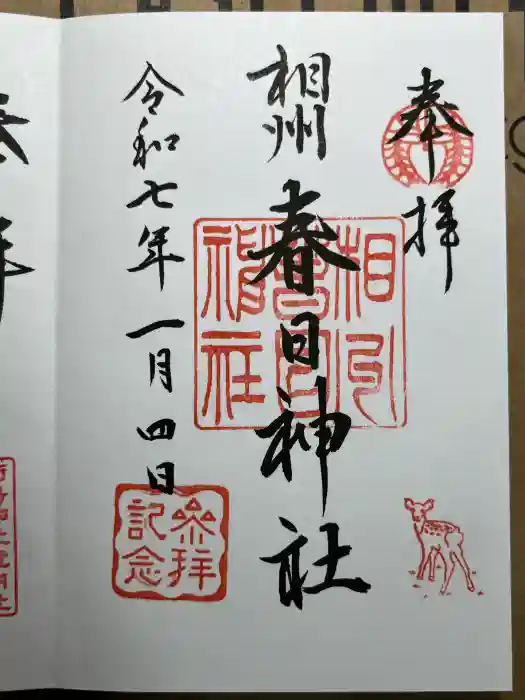 奉拝
相州
春日神社
相州
春日
神社
令和七年一月四日
參拝
記念